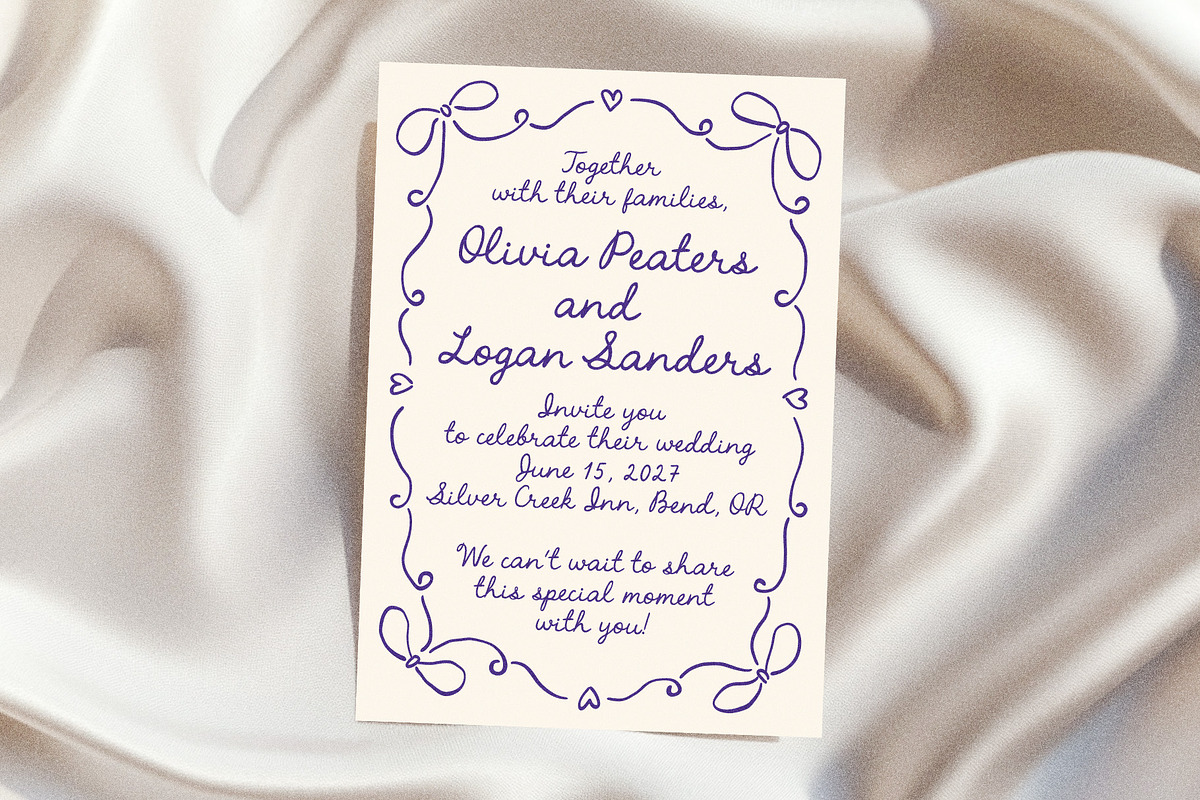 Together
with their families,
Olivia Peaters
and
Logan Sanders
Invite you
to celebrate their wedding
June 15, 2027
Silver Creek Inn, Bend, OR
We can't wait to share
this special moment
with you!